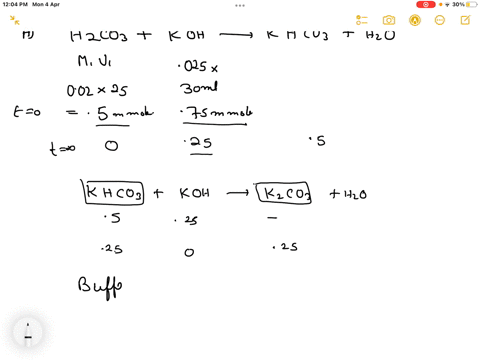 12:04 PM Mon 4 Apr
30%
H2CO3 + KOH → KHCO3 + H2O
M1V1 .025 x
0.02 x 25 30ml
t=0 = .5 mmole .75 mmole
t=0 0 .25 .5
KHCO3 + KOH → K2CO3 + H2O
.5 .25 –
.25 0 .25
Buffe